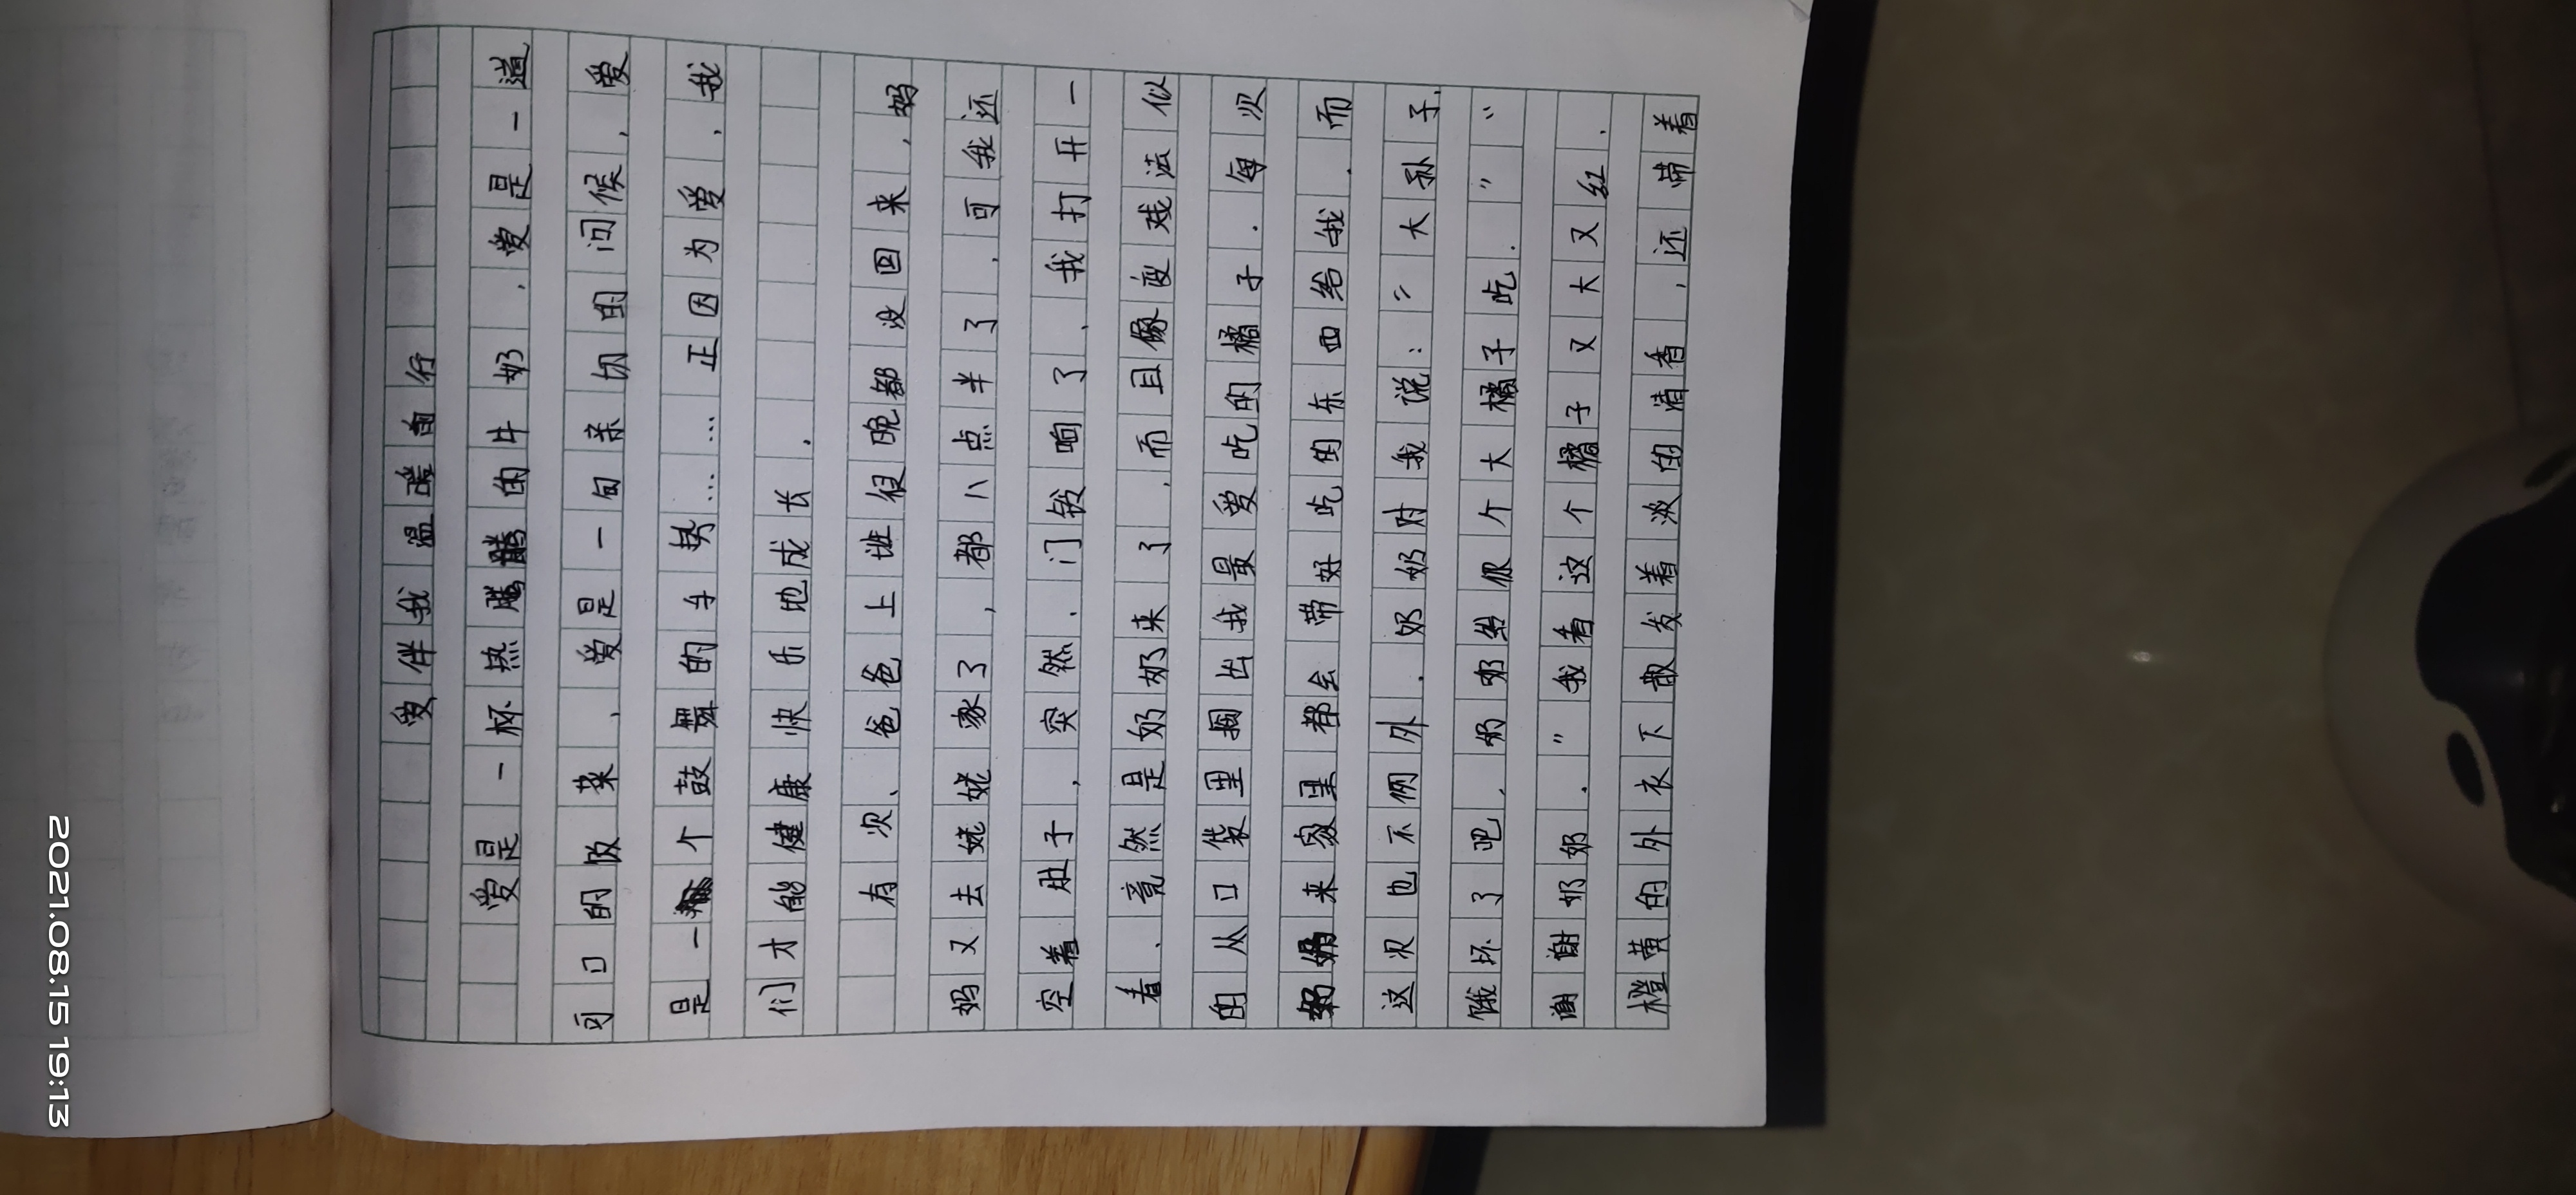 爱伴我温暖前行
爱是一杯热腾腾的牛奶，爱是一道
可口的饭菜，爱是一句亲切的问候，爱
是一个鼓舞的手势……正因为爱，我
们才能健康快乐地成长．
有次、爸爸上班很晚都没回来，妈
妈又去姥姥家了，都八点半了，可我还
空着肚子，突然．门铃响了、我打开一
看、竟然是奶奶来了，而且像变戏法似
的从口袋里掏出我最爱吃的橘子．每次
奶奶来家里都会带好吃的东西给我．而
这次也不例外．奶奶对我说：“大孙子，
饿坏了吧，奶奶给你个大橘子吃．””
谢谢奶奶．”我看这个橘子又大又红．
橙黄的外衣下散发着淡的清香，还带着
2021.08.15 19:13